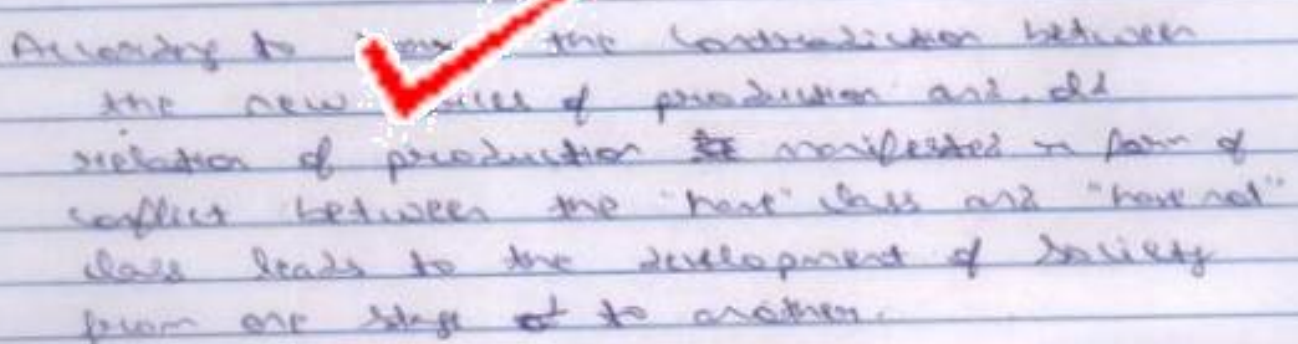 According to the contradiction between
the new forces of production and old
relation of production manifested in form of
conflict between the "have" class and "have not"
class leads to the development of society
from one stage to another.